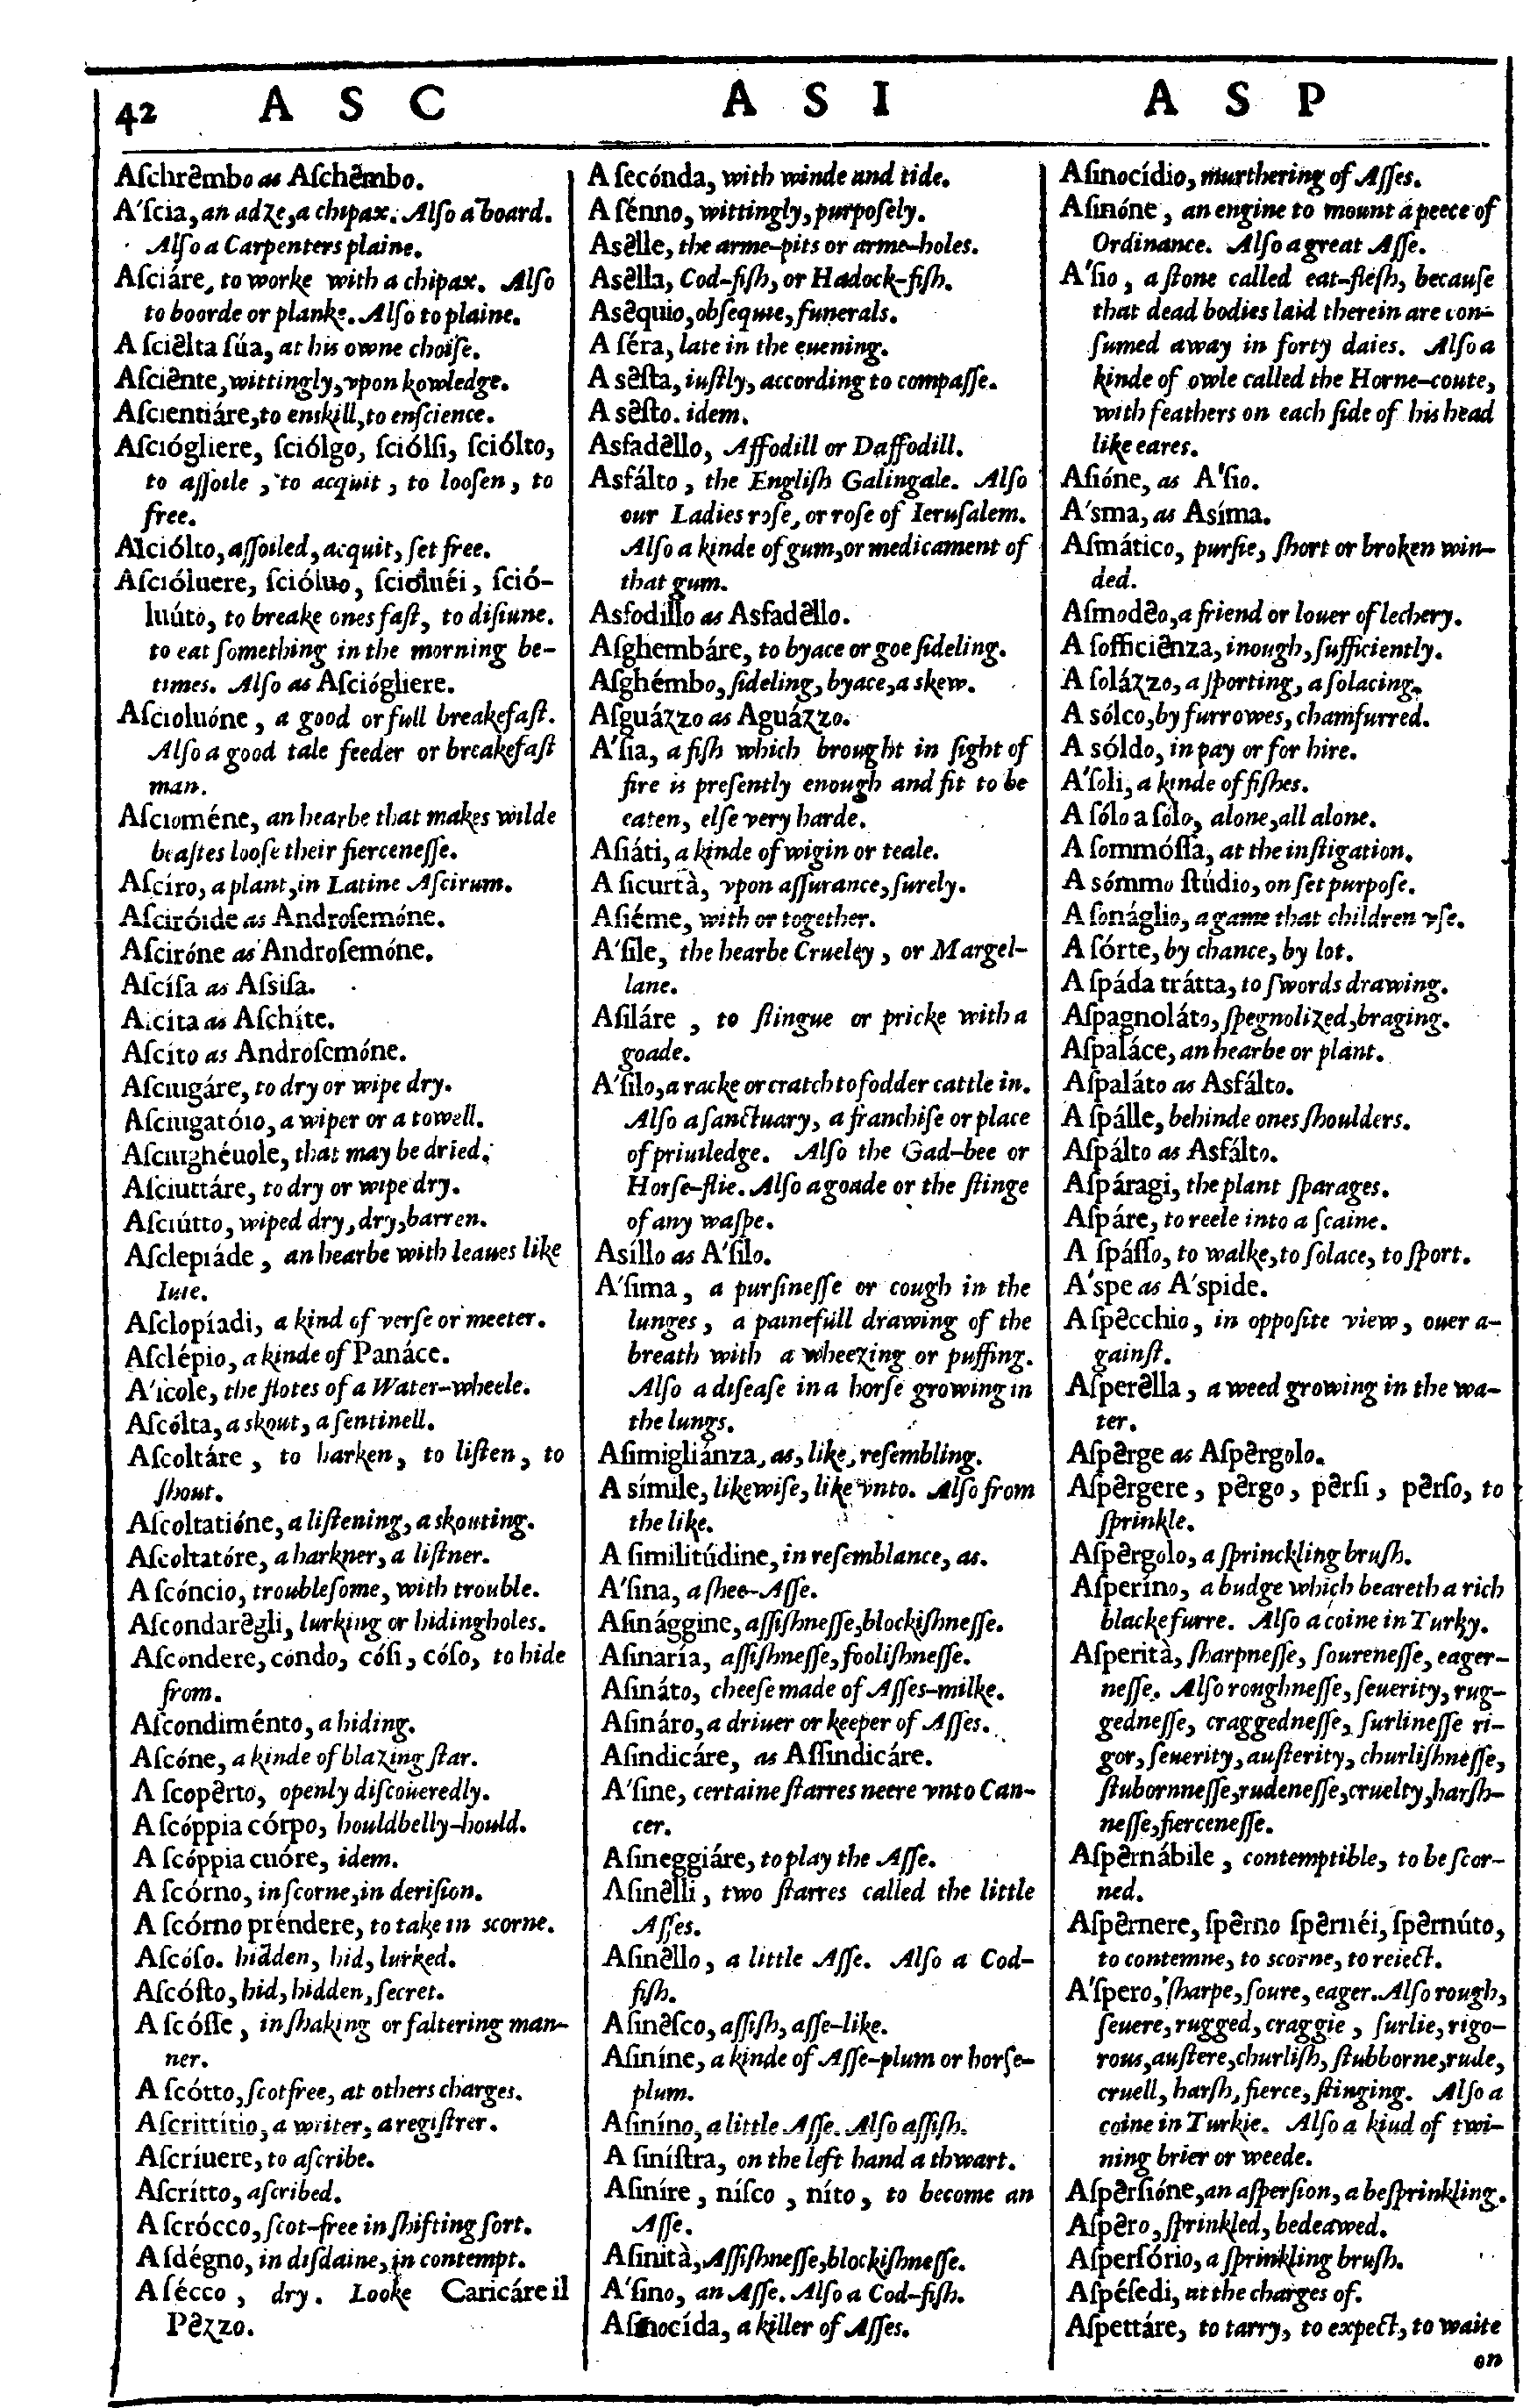 42 A S C
A S I
A S P
Aſchrêmbo as Aſchêmbo.
A'ſcia, an adze, a chipax. Alſo a board.
Alſo a Carpenters plaine.
Aſciáre, to worke with a chipax. Alſo
to boorde or planke. Alſo to plaine.
A ſciêlta ſúa, at his owne choiſe.
Aſciênte, wittingly, vpon kowledge.
Aſcientiáre, to enskill, to enſcience.
Aſciógliere, ſciólgo, ſciólſi, ſciólto,
to aſſoile, to acquit, to looſen, to
free.
Aſciólto, aſſoiled, acquit, ſet free.
Aſcióluere, ſcióluo, ſcioluéi, ſció-
luúto, to breake ones faſt, to diſiune.
to eat ſomething in the morning be-
times. Alſo as Aſciógliere.
Aſcioluóne, a good or full breakefaſt.
Alſo a good tale feeder or breakefaſt
man.
Aſcioméne, an hearbe that makes wilde
beaſtes looſe their fierceneſſe.
Aſcíro, a plant, in Latine Aſcirum.
Aſciróide as Androſemóne.
Aſciróne as Androſemóne.
Aſcíſa as Aſsiſa.
Aſcíta as Aſchíte.
Aſcíto as Androſemóne.
Aſciugáre, to dry or wipe dry.
Aſciugatóio, a wiper or a towell.
Aſciughéuole, that may be dried.
Aſciuttáre, to dry or wipe dry.
Aſciútto, wiped dry, dry, barren.
Aſclepiáde, an hearbe with leaues like
Iuie.
Aſclopíadi, a kind of verſe or meeter.
Aſclépio, a kinde of Panáce.
A'ſcole, the flotes of a Water-wheele.
Aſcólta, a skout, a ſentinell.
Aſcoltáre, to harken, to liſten, to
ſhout.
Aſcoltatióne, a liſtening, a skouting.
Aſcoltatóre, a harkner, a liſtner.
A ſcóncio, troubleſome, with trouble.
Aſcondarêgli, lurking or hidingholes.
Aſcóndere, cóndo, cóſi, cóſo, to hide
from.
Aſcondiménto, a hiding.
Aſcóne, a kinde of blazing ſtar.
A ſcopêrto, openly diſcoueredly.
A ſcóppia córpo, houldbelly-hould.
A ſcóppia cuóre, idem.
A ſcórno, in ſcorne, in deriſion.
A ſcórno préndere, to take in scorne.
Aſcóſo. hidden, hid, lurked.
Aſcóſto, hid, hidden, ſecret.
A ſcóſſe, in ſhaking or faltering man-
ner.
A ſcótto, ſcotfree, at others charges.
Aſcrittítio, a writer, a regiſtrer.
Aſcríuere, to aſcribe.
Aſcrítto, aſcribed.
A ſcrócco, ſcot-free in ſhifting ſort.
A ſdégno, in diſdaine, in contempt.
A ſécco, dry. Looke Caricáre il
Pêzzo.
A ſecónda, with winde and tide.
A ſénno, wittingly, purpoſely.
Asêlle, the arme-pits or arme-holes.
Asêlla, Cod-fiſh, or Hadock-fiſh.
Asêquio, obſequie, funerals.
A ſéra, late in the euening.
A sêſta, iuſtly, according to compaſſe.
A sêſto. idem.
Asfadêllo, Affodill or Daffodill.
Asfálto, the Engliſh Galingale. Alſo
our Ladies roſe, or roſe of Ieruſalem.
Alſo a kinde of gum, or medicament of
that gum.
Asfodíllo as Asfadêllo.
Aſghembáre, to byace or goe ſideling.
Aſghémbo, ſideling, byace, a skew.
Aſguázzo as Aguázzo.
A'ſia, a fiſh which brought in ſight of
fire is preſently enough and fit to be
eaten, elſe very harde.
Aſiáti, a kinde of wigin or teale.
A ſicurtà, vpon aſſurance, ſurely.
Aſiéme, with or together.
A'ſile, the hearbe Crueley, or Margel-
lane.
Aſiláre, to ſtingue or pricke with a
goade.
A'ſilo, a racke or cratch to fodder cattle in.
Alſo a ſanctuary, a franchiſe or place
of priuiledge. Alſo the Gad-bee or
Horſe-flie. Alſo a goade or the ſtinge
of any waſpe.
Asíllo as A'ſilo.
A'ſima, a purſineſſe or cough in the
lunges, a painefull drawing of the
breath with a wheezing or puffing.
Alſo a diſeaſe in a horſe growing in
the lungs.
Aſimigliánza, as, like, reſembling.
A símile, likewiſe, like vnto. Alſo from
the like.
A ſimilitúdine, in reſemblance, as.
A'ſina, a ſhee-Aſſe.
Aſinággine, aſſiſhneſſe, blockiſhneſſe.
Aſinaría, aſſiſhneſſe, fooliſhneſſe.
Aſináto, cheeſe made of Aſſes-milke.
Aſináro, a driuer or keeper of Aſſes.
Aſindicáre, as Aſſindicáre.
A'ſine, certaine ſtarres neere vnto Can-
cer.
Aſineggiáre, to play the Aſſe.
Aſinêlli, two ſtarres called the little
Aſſes.
Aſinêllo, a little Aſſe. Alſo a Cod-
fiſh.
Aſinêſco, aſſiſh, aſſe-like.
Aſiníne, a kinde of Aſſe-plum or horſe-
plum.
Aſiníno, a little Aſſe. Alſo aſſiſh.
A ſiníſtra, on the left hand a thwart.
Aſiníre, níſco, níto, to become an
Aſſe.
Aſinità, Aſſiſhneſſe, blockiſhneſſe.
A'ſino, an Aſſe. Alſo a Cod-fiſh.
Aſinocída, a killer of Aſſes.
Aſinocídio, murthering of Aſſes.
Aſinóne, an engine to mount a peece of
Ordinance. Alſo a great Aſſe.
A'ſio, a ſtone called eat-fleſh, becauſe
that dead bodies laid therein are con-
ſumed away in forty daies. Alſo a
kinde of owle called the Horne-coute,
with feathers on each ſide of his head
like eares.
Aſióne, as A'ſio.
A'sma, as Asíma.
Aſmático, purſie, ſhort or broken win-
ded.
Aſmodêo, a friend or louer of lechery.
A ſofficiênza, inough, ſufficiently.
A ſolázzo, a ſporting, a ſolacing.
A sólco, by furrowes, chamfurred.
A sóldo, in pay or for hire.
A'ſoli, a kinde of fiſhes.
A ſólo a ſólo, alone, all alone.
A ſommóſſa, at the inſtigation.
A sómmo ſtúdio, on ſet purpoſe.
A ſonáglio, a game that children vſe.
A ſórte, by chance, by lot.
A ſpáda trátta, to ſwords drawing.
Aſpagnoláto, ſpegnolized, braging.
Aſpaláce, an hearbe or plant.
Aſpaláto as Asfálto.
A ſpálle, behinde ones ſhoulders.
Aſpálto as Asfálto.
Aſpáragi, the plant ſparages.
Aſpáre, to reele into a ſcaine.
A ſpáſſo, to walke, to ſolace, to ſport.
A'spe as A'spide.
Aſpêcchio, in oppoſite view, ouer a-
gainſt.
Aſperêlla, a weed growing in the wa-
ter.
Aſpêrge as Aſpêrgolo.
Aſpêrgere, pêrgo, pêrſi, pêrſo, to
ſprinkle.
Aſpêrgolo, a ſprinckling bruſh.
Aſperíno, a budge which beareth a rich
blacke furre. Alſo a coine in Turky.
Aſperità, ſharpneſſe, ſoureneſſe, eager-
neſſe. Alſo roughneſſe, ſeuerity, rug-
gedneſſe, craggedneſſe, ſurlineſſe ri-
gor, ſeuerity, auſterity, churliſhneſſe,
ſtubornneſſe, rudeneſſe, cruelty, harſh-
neſſe, fierceneſſe.
Aſpêrnábile, contemptible, to be ſcor-
ned.
Aſpêrnere, ſpêrno ſpêrnéi, ſpêrnúto,
to contemne, to scorne, to reiect.
A'ſpero, ſharpe, ſoure, eager. Alſo rough,
ſeuere, rugged, craggie, ſurlie, rigo-
rous, auſtere, churliſh, ſtubborne, rude,
cruell, harſh, fierce, ſtinging. Alſo a
coine in Turkie. Alſo a kiud of twi-
ning brier or weede.
Aſpêrſióne, an aſperſion, a beſprinkling.
Aſpêro, ſprinkled, bedeawed.
Aſperſório, a ſprinkling bruſh.
Aſpéſedi, at the charges of.
Aſpettáre, to tarry, to expect, to waite
on